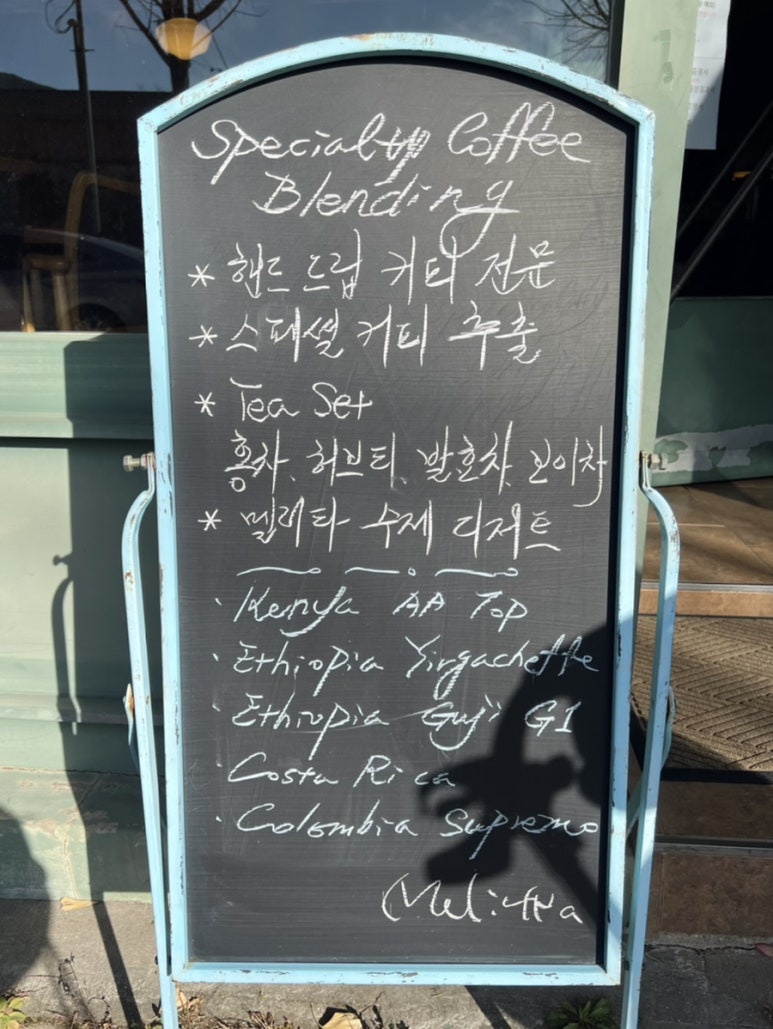 Specialty Coffee
Blending
* 핸드드립 커피 전문
* 스페셜 커피 추출
* Tea Set
홍차, 허브티, 발효차, 보이차
* 멜리타 수제 디저트
· Kenya AA Top
· Ethiopia Yirgacheffe
· Ethiopia Guji G1
· Costa Rica
· Colombia Supremo
Melitta